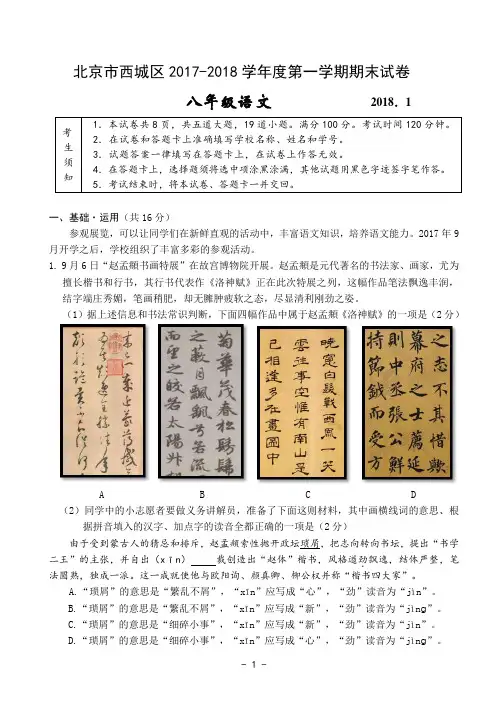 北京市西城区2017-2018学年度第一学期期末试卷
八年级语文 2018．1
考生须知
1．本试卷共8页，共五道大题，19道小题。满分100分。考试时间120分钟。
2．在试卷和答题卡上准确填写学校名称、姓名和学号。
3．试题答案一律填写在答题卡上，在试卷上作答无效。
4．在答题卡上，选择题须将选中项涂黑涂满，其他试题用黑色字迹签字笔作答。
5．考试结束时，将本试卷、答题卡一并交回。
一、基础·运用（共16分）
参观展览，可以让同学们在新鲜直观的活动中，丰富语文知识，培养语文能力。2017年9
月开学之后，学校组织了丰富多彩的参观活动。
1. 9月6日“赵孟頫书画特展”在故宫博物院开展。赵孟頫是元代著名的书法家、画家，尤为
擅长楷书和行书，其行书代表作《洛神赋》正在此次特展之列，这幅作品笔法飘逸丰润，
结字端庄秀媚，笔画稍肥，却无臃肿疲软之态，尽显清利刚劲之姿。
（1）据上述信息和书法常识判断，下面四幅作品中属于赵孟頫《洛神赋》的一项是（2分）
菊華茂春松髣髴
之蔽月飄颻兮若流
而望之皎若太陽升朝
西風一笑
雲往事空惟有南山足
已相逢多在畫圖中
之志不其惜歟
幕府之士薦延
則中丞張公鮮
持節鉞而受方
A B C D
（2）同学中的小志愿者要做义务讲解员，准备了下面这则材料，其中画横线词的意思、根
据拼音填入的汉字、加点字的读音全都正确的一项是（2分）
由于受到蒙古人的猜忌和排斥，赵孟頫索性抛开政坛琐屑，把志向转向书坛，提出“书学
二王”的主张，并自出（xīn）____裁创造出“赵体”楷书，风格遒劲飘逸，结体严整，笔
法圆熟，独成一派。这一成就使他与欧阳询、颜真卿、柳公权并称“楷书四大家”。
A.“琐屑”的意思是“繁乱不屑”，“xīn”应写成“心”，“劲”读音为“jìn”。
B.“琐屑”的意思是“繁乱不屑”，“xīn”应写成“新”，“劲”读音为“jìng”。
C.“琐屑”的意思是“细碎小事”，“xīn”应写成“新”，“劲”读音为“jìn”。
D.“琐屑”的意思是“细碎小事”，“xīn”应写成“心”，“劲”读音为“jìng”。
- 1 -